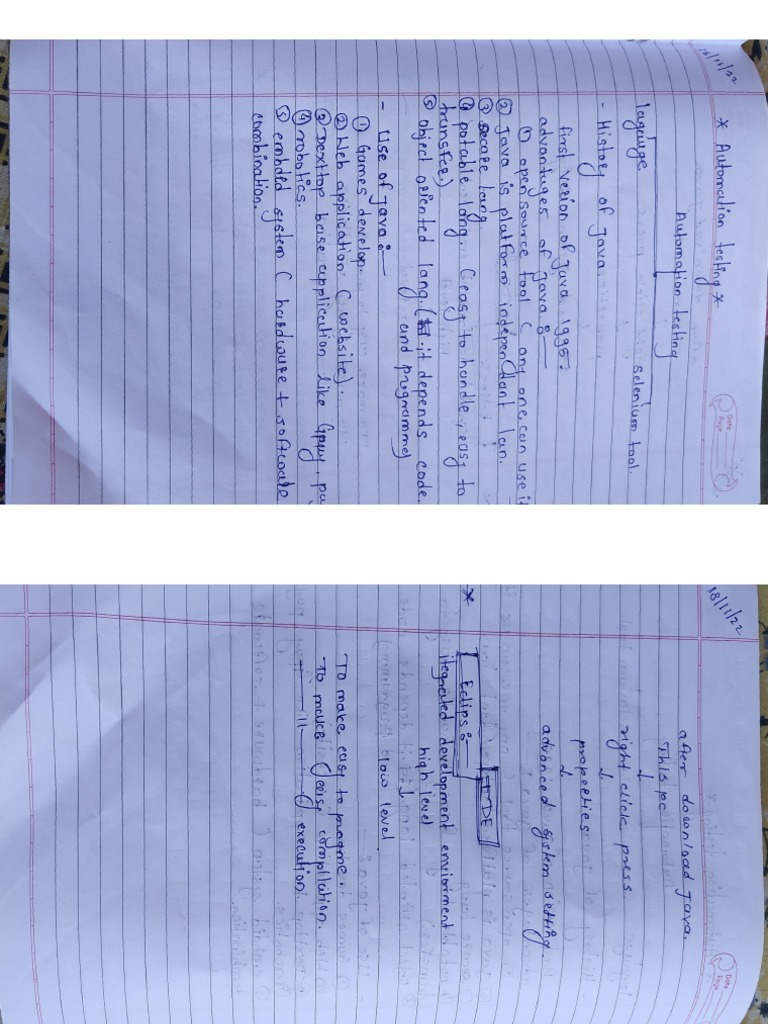 18/11/22
* Automation testing *
Automation testing
laguage
selenium tool.
- History of Java
first version of Java 1995.
advantages of Java :-
① open source tool ( any one can use it
② Java is platform independant lan.
③ secure lang
④ potable lang. ( easy to handle, easy to
transfer)
⑤ object oriented lang. ( it depends code
and programme)
- Use of java :-
① Games develop.
② Web application ( website).
③ Desktop base application like Gpay, pa
④ robotics.
⑤ embded system ( hardware + software
combination.
Date
Page
18/11/22
Date
Page
after download Java.
This pc
↓
right click press
↓
propeeties
↓
advanced system setting.
IDE
* Eclips :-
itegrated development enviorment
high level
↓
low level
To make easy to progme.
To make easy compilation.
—— 111 —— execution